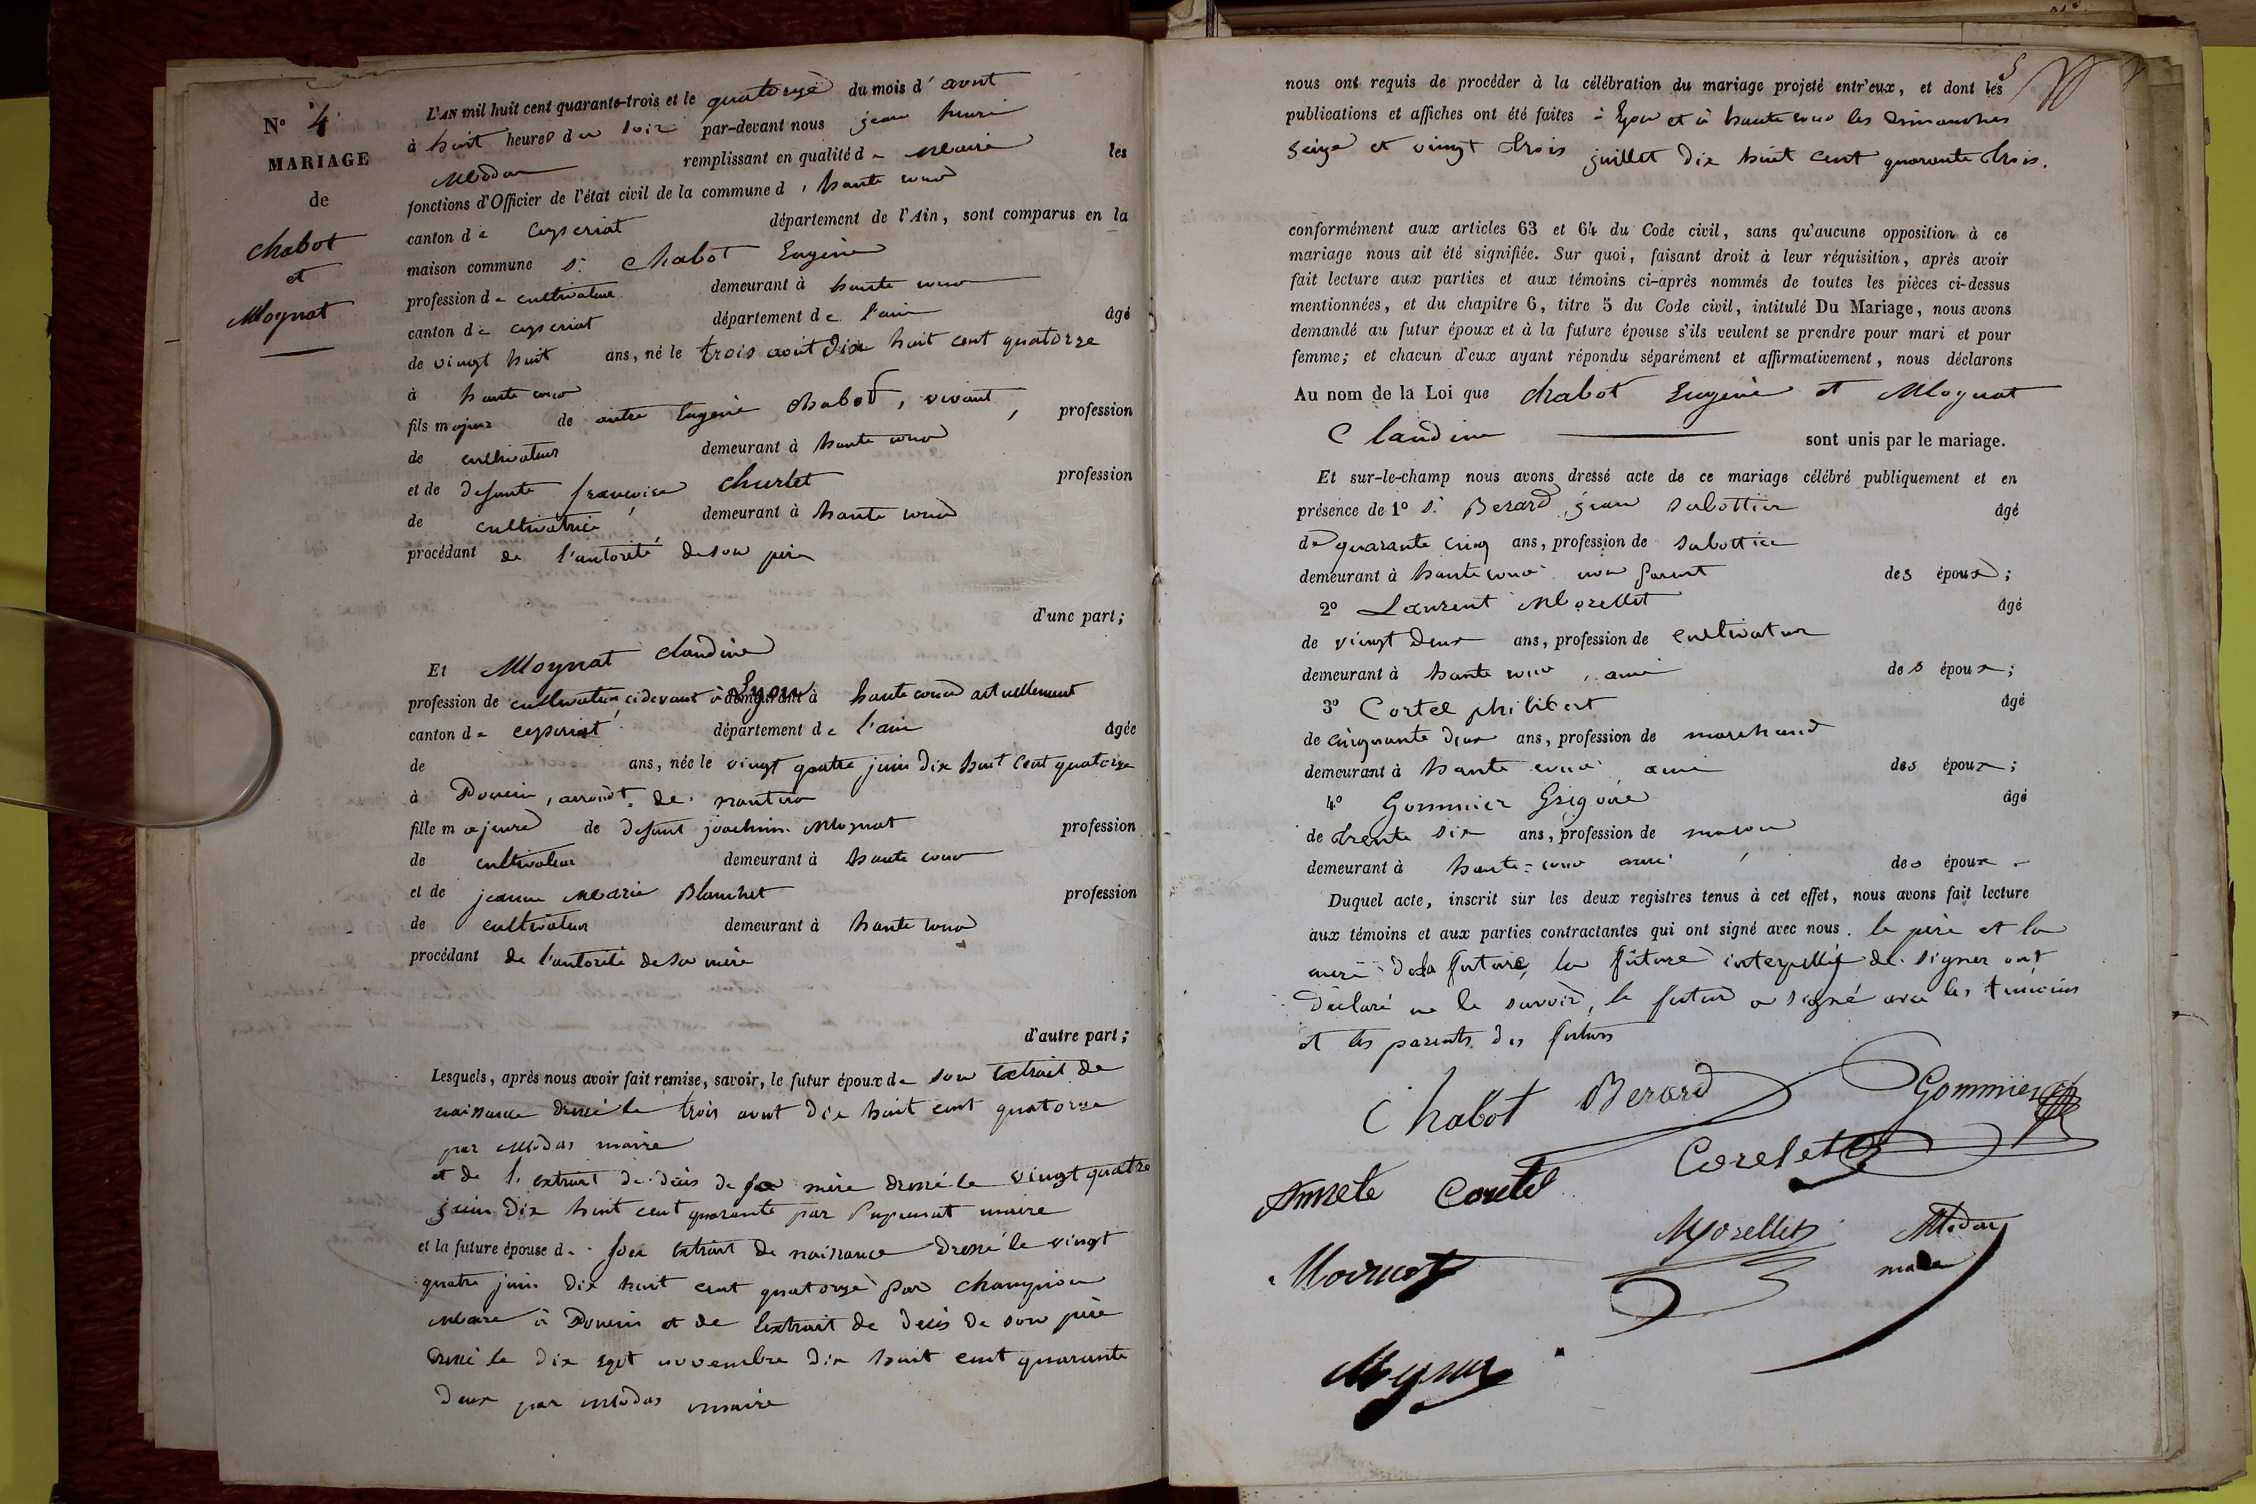 N° 4
MARIAGE
de
Chabot
et
Moynat
L'AN mil huit cent quarante-trois et le quatorze du mois d'aout
à huit heures du soir par-devant nous jean henri
Modas remplissant en qualité de Maire les
fonctions d'Officier de l'état civil de la commune d'haute cour
canton de Ceyseriat département de l'Ain, sont comparus en la
maison commune S. Chabot Eugène
profession de cultivateur demeurant à haute cour
canton de ceyseriat département de l'ain âgé
de vingt huit ans, né le trois aout dix huit cent quatorze
à haute cour
fils majeur de autre Eugène Chabot, vivant, profession
de cultivateur demeurant à haute cour
et de defunte françoise Churlet profession
de cultivatrice demeurant à haute cour
procédant de l'autorité de son père
d'une part;
Et Moynat Claudine
profession de cultivatrice, cidevant à Lyon demeurant à haute cour actuellement
canton de ceyseriat département de l'ain âgée
de ans, née le vingt quatre juin dix huit cent quatorze
à Douvin, arrondt. de nantua
fille majeure de defunt joachim Moynat profession
de cultivateur demeurant à haute cour
et de jeanne Marie Blanchet profession
de cultivateur demeurant à haute cour
procédant de l'autorité de sa mère
d'autre part;
Lesquels, après nous avoir fait remise, savoir, le futur époux de son Extrait de
naissance dressé le trois aout dix huit cent quatorze
par Modas maire
et de l'extrait de décès de sa mère dressé le vingt quatre
juin dix huit cent quarante par maire
et la future épouse de son Extrait de naissance dressé le vingt
quatre juin dix huit cent quatorze par Champion
Maire à Douvin et de l'extrait de décès de son père
dressé le dix sept novembre dix huit cent quarante
deux par Modas maire
nous ont requis de procéder à la célébration du mariage projeté entr'eux, et dont les
publications et affiches ont été faites à Lyon et à haute cour les dimanches
seize et vingt trois juillet dix huit cent quarante trois.
conformément aux articles 63 et 64 du Code civil, sans qu'aucune opposition à ce
mariage nous ait été signifiée. Sur quoi, faisant droit à leur réquisition, après avoir
fait lecture aux parties et aux témoins ci-après nommés de toutes les pièces ci-dessus
mentionnées, et du chapitre 6, titre 5 du Code civil, intitulé Du Mariage, nous avons
demandé au futur époux et à la future épouse s'ils veulent se prendre pour mari et pour
femme; et chacun d'eux ayant répondu séparément et affirmativement, nous déclarons
Au nom de la Loi que Chabot Eugène et Moynat
Claudine sont unis par le mariage.
Et sur-le-champ nous avons dressé acte de ce mariage célébré publiquement et en
présence de 1° S. Berard, jean sabottier âgé
de quarante cinq ans, profession de sabottier
demeurant à haute cour non parent des époux;
2° Laurent Morellet âgé
de vingt deux ans, profession de cultivateur
demeurant à haute cour, ami des époux;
3° Cortel philibert âgé
de cinquante deux ans, profession de marchand
demeurant à haute cour ami des époux;
4° Gommier Grégoire âgé
de trente six ans, profession de maçon
demeurant à haute-cour ami des époux
Duquel acte, inscrit sur les deux registres tenus à cet effet, nous avons fait lecture
aux témoins et aux parties contractantes qui ont signé avec nous. le père et la
mère de la future, la future interpellés de signer ont
déclaré ne le savoir, le futur a signé avec les témoins
et les parents des futurs
Chabot Berard Gommier
Corelet
Cortel
Morellet Modas
maire